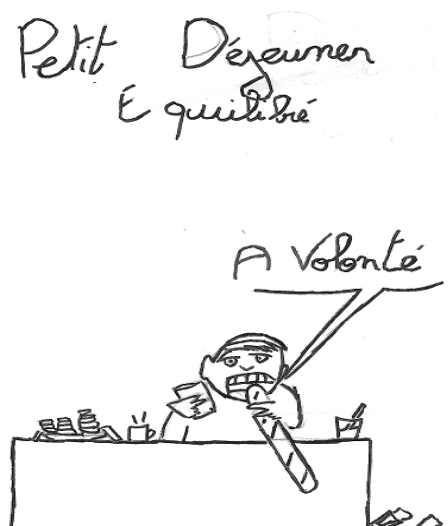 Petit Déjeuner
Équilibré
A Volonté